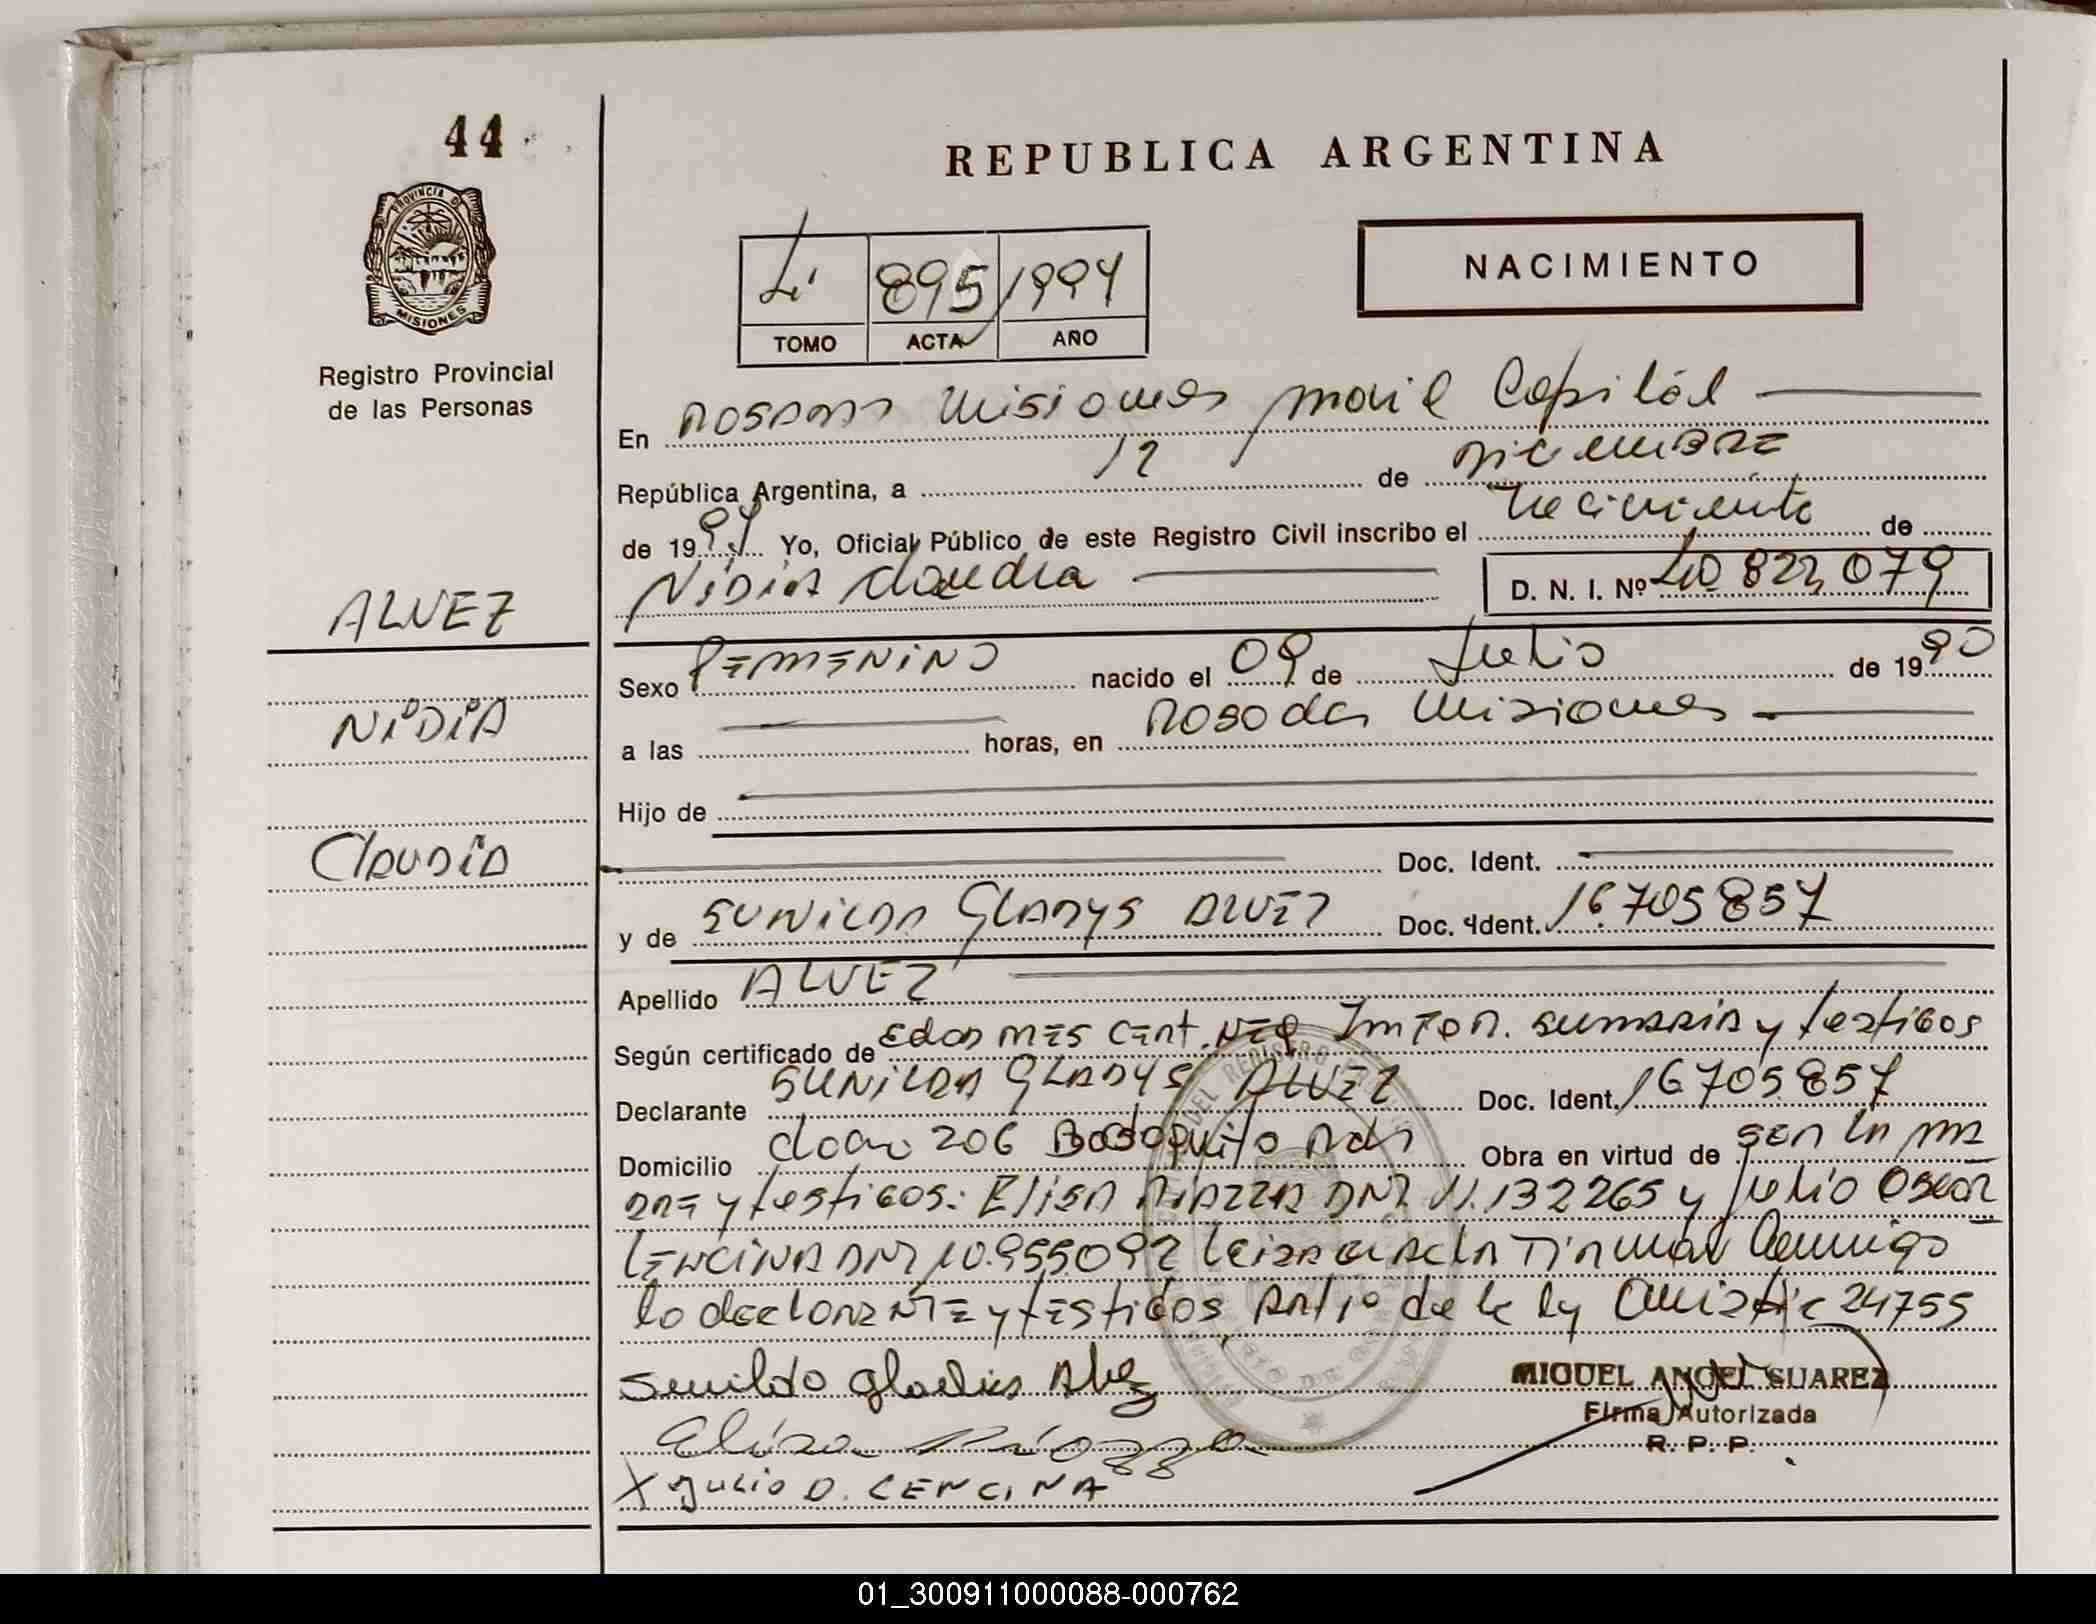 44
REPUBLICA ARGENTINA
PROVINCIA D
MISIONES
Registro Provincial
de las Personas
895 1997
TOMO ACTA AÑO
NACIMIENTO
En Posadas Misiones movil Capital
República Argentina, a 12 de Diciembre
de 1997 Yo, Oficial Público de este Registro Civil inscribo el Nacimiento de
Nidia Claudia D. N. I. Nº 40 823 079
ALVEZ
Sexo FEMENINO nacido el 09 de Julio de 1990
NIDIA
a las horas, en Posadas Misiones
Hijo de
CLAUDIA
Doc. Ident.
y de SUNILDA GLADYS ALVEZ Doc. Ident. 16.705857
Apellido ALVEZ
Según certificado de Edad MES CERT. NEG INFOR. SUMARIA y testigos
Declarante SUNILDA GLADYS ALVEZ Doc. Ident. 16705.857
Domicilio 206 Obra en virtud de SER LA MA
DRE y testigos: Elisa PIAZZA DNI 11.132265 y Julio Oscar
LENCINA DNI 10.955092 Leida el ACTA Firman Conmigo
la declarante y testigos, Art 1º de la ley Amistia 24755
Sunilda Gladis Alvez
MIGUEL ANGEL SUAREZ
Firma Autorizada
R. P. P.
Elisa Piazza
X Julio O. LENCINA
01_300911000088-000762